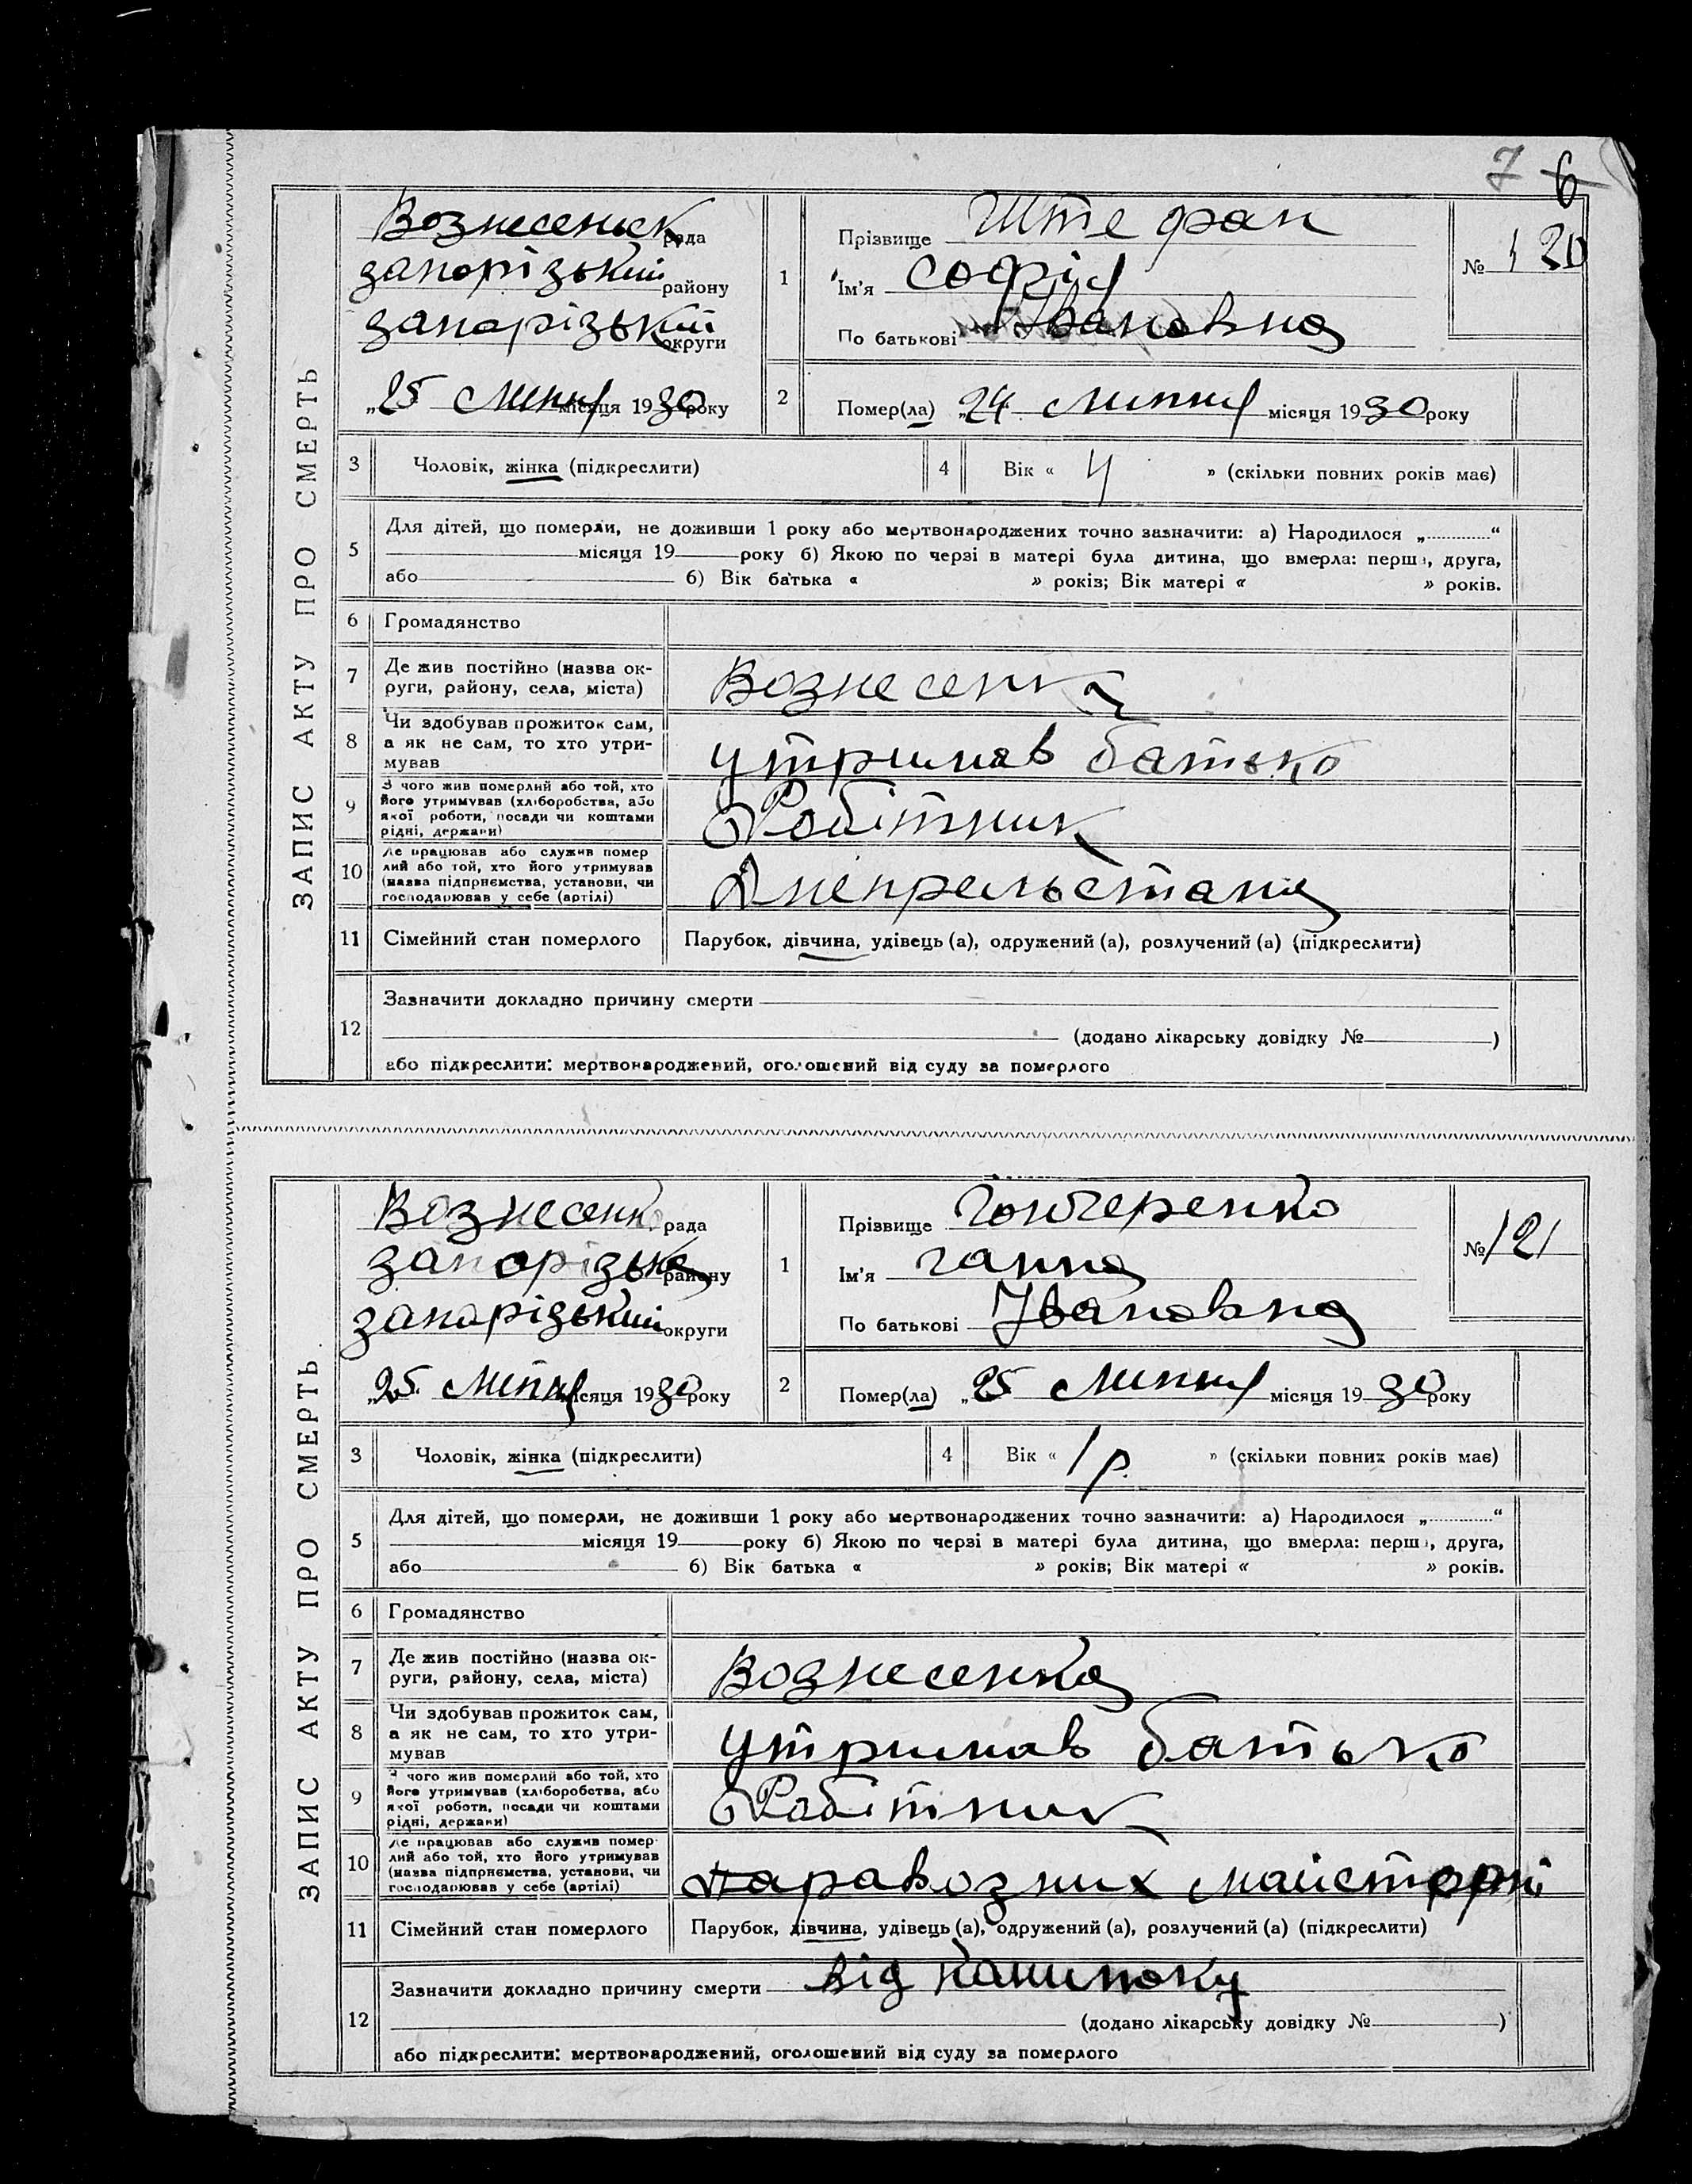 7 6
ЗАПИС АКТУ ПРО СМЕРТЬ
Вознесенск рада
запорізький району
запорізький округи
„25 липня місяця 1930 року
1
Прізвище Штефан
Ім'я Софія
По батькові Івановна
№ 120
2
Помер(ла) „24 липня місяця 1930 року
3 Чоловік, жінка (підкреслити)
4 Вік « 4 » (скільки повних років має)
5 Для дітей, що померли, не доживши 1 року або мертвонароджених точно зазначити: а) Народилося „ “
місяця 19 року б) Якою по черзі в матері була дитина, що вмерла: перша, друга,
або б) Вік батька « » років; Вік матері « » років.
6 Громадянство
7 Де жив постійно (назва ок-
руги, району, села, міста)
Вознесенка
8 Чи здобував прожиток сам,
а як не сам, то хто утри-
мував
утримав батько
9 З чого жив померлий або той, хто
його утримував (хліборобства, або
якої роботи, посади чи коштами
рідні, держави)
Робітник
10 Де працював або служив помер
лий або той, хто його утримував
(назва підприємства, установи, чи
господарював у себе (артілі)
11 Сімейний стан померлого
Парубок, дівчина, удівець (а), одружений (а), розлучений (а) (підкреслити)
12 Зазначити докладно причину смерти
(додано лікарську довідку № )
або підкреслити: мертвонароджений, оголошений від суду за померлого
ЗАПИС АКТУ ПРО СМЕРТЬ
Вознесенк рада
запорізька району
запорізький округи
„25 липня місяця 1930 року
1
Прізвище
Ім'я ганна
По батькові Івановна
№ 121
2
Помер(ла) „25 липня місяця 1930 року
3 Чоловік, жінка (підкреслити)
4 Вік « 1 р. » (скільки повних років має)
5 Для дітей, що померли, не доживши 1 року або мертвонароджених точно зазначити: а) Народилося „ “
місяця 19 року б) Якою по черзі в матері була дитина, що вмерла: перша, друга,
або б) Вік батька « » років; Вік матері « » років.
6 Громадянство
7 Де жив постійно (назва ок-
руги, району, села, міста)
Вознесенка
8 Чи здобував прожиток сам,
а як не сам, то хто утри-
мував
утримав батько
9 З чого жив померлий або той, хто
його утримував (хліборобства, або
якої роботи, посади чи коштами
рідні, держави)
Робітник
10 Де працював або служив помер
лий або той, хто його утримував
(назва підприємства, установи, чи
господарював у себе (артілі)
паравозних майстерні
11 Сімейний стан померлого
Парубок, дівчина, удівець (а), одружений (а), розлучений (а) (підкреслити)
12 Зазначити докладно причину смерти від
(додано лікарську довідку № )
або підкреслити: мертвонароджений, оголошений від суду за померлого